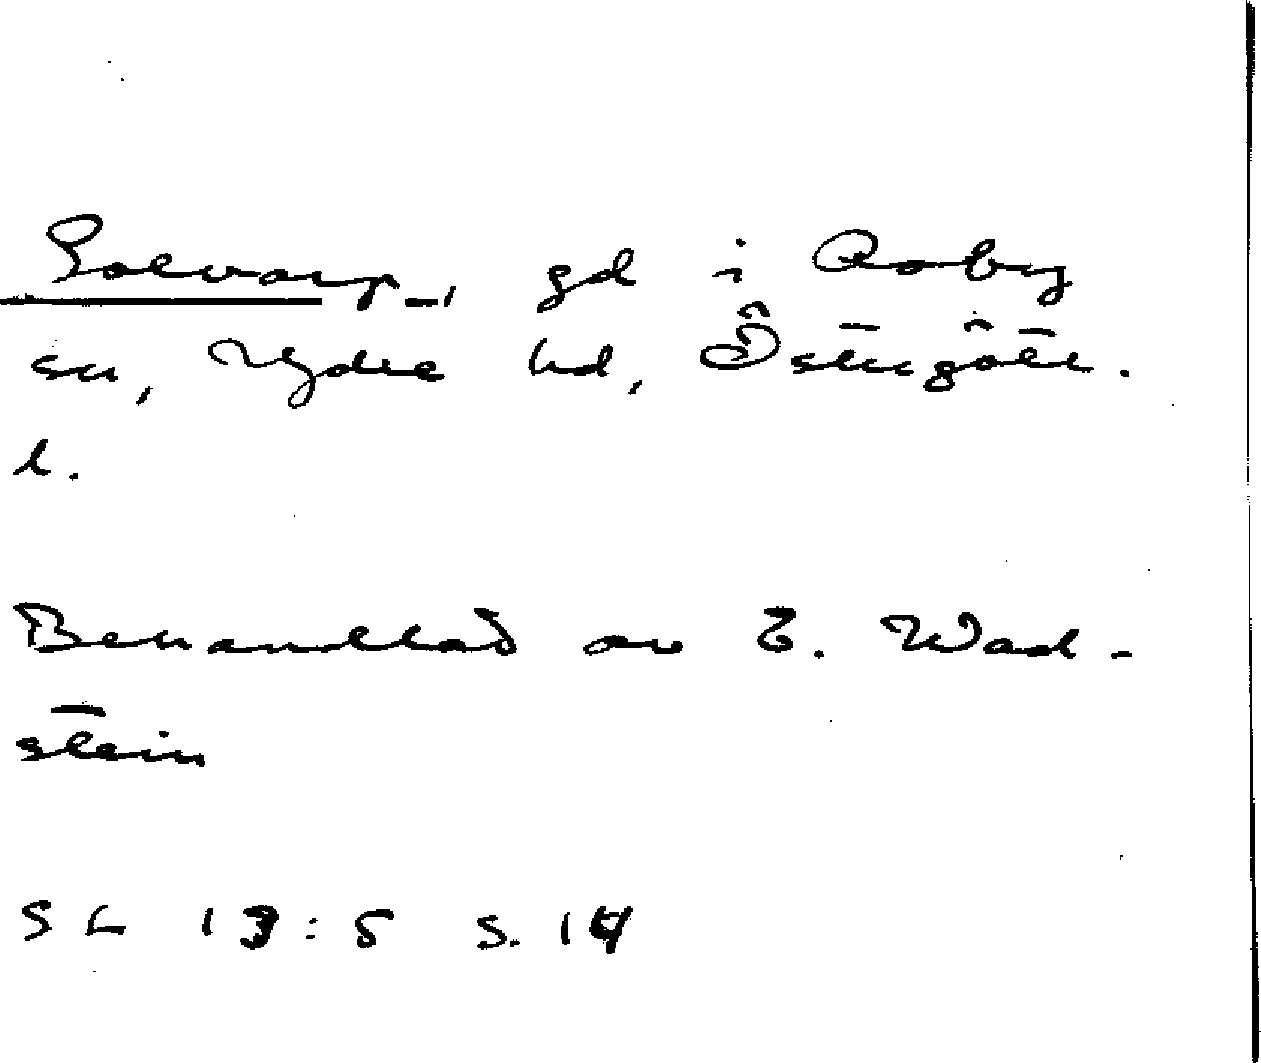 Solvarp_, gd i Asby
sn, Ydre hd, Östergötl.
l.
Behandlad av E. Wad-
stein
SL 13:5 s. 14